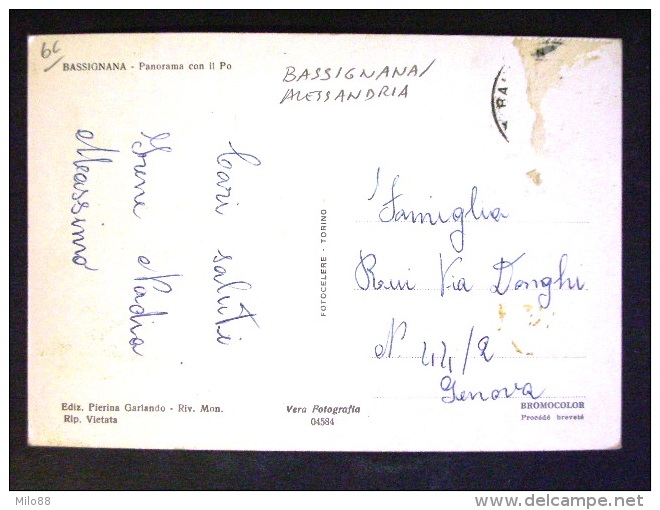 6c
BASSIGNANA - Panorama con il Po
BASSIGNANA/
ALESSANDRIA
Cari saluti
Irene Nadia
Massimo
FOTOCELERE - TORINO -
Famiglia
Via Donghi
N. 44/2
Genova
Ediz. Pierina Garlando - Riv. Mon.
Rip. Vietata
Vera Fotografia
04584
BROMOCOLOR
Procédé breveté
Milo88
http://www.delcampe.net